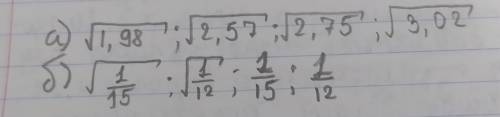 а) √1,98 ; √2,57 ; √2,75 ; √3,02
б) √1/15 ; √1/12 ; 1/15 ; 1/12